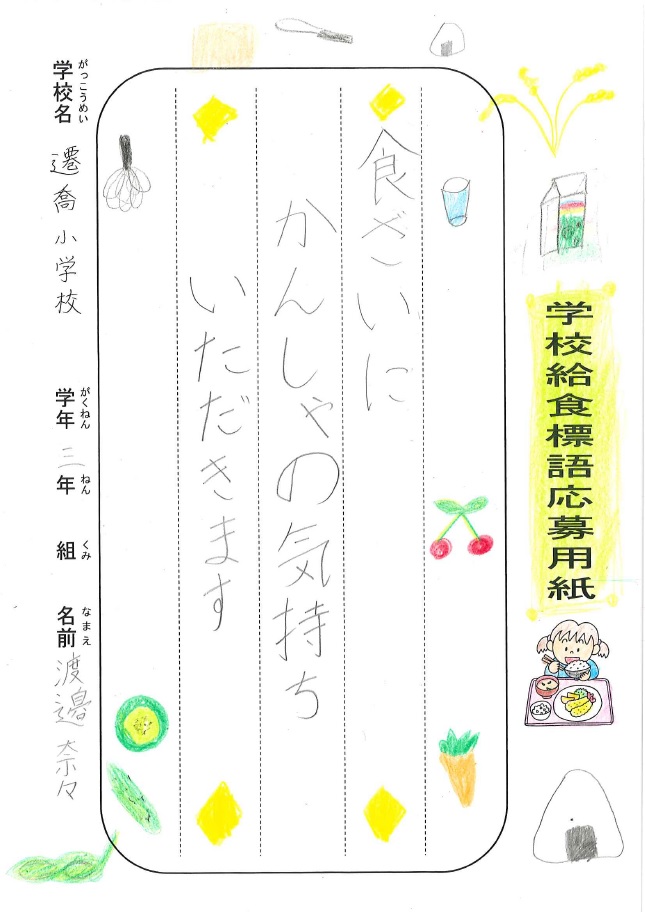 学校給食標語応募用紙
食ざいに
かんしゃの気持ち
いただきます
学校名 がっこうめい 遷喬小学校
学年 がくねん 三年 ねん 組 くみ 名前 なまえ 渡邉奈々